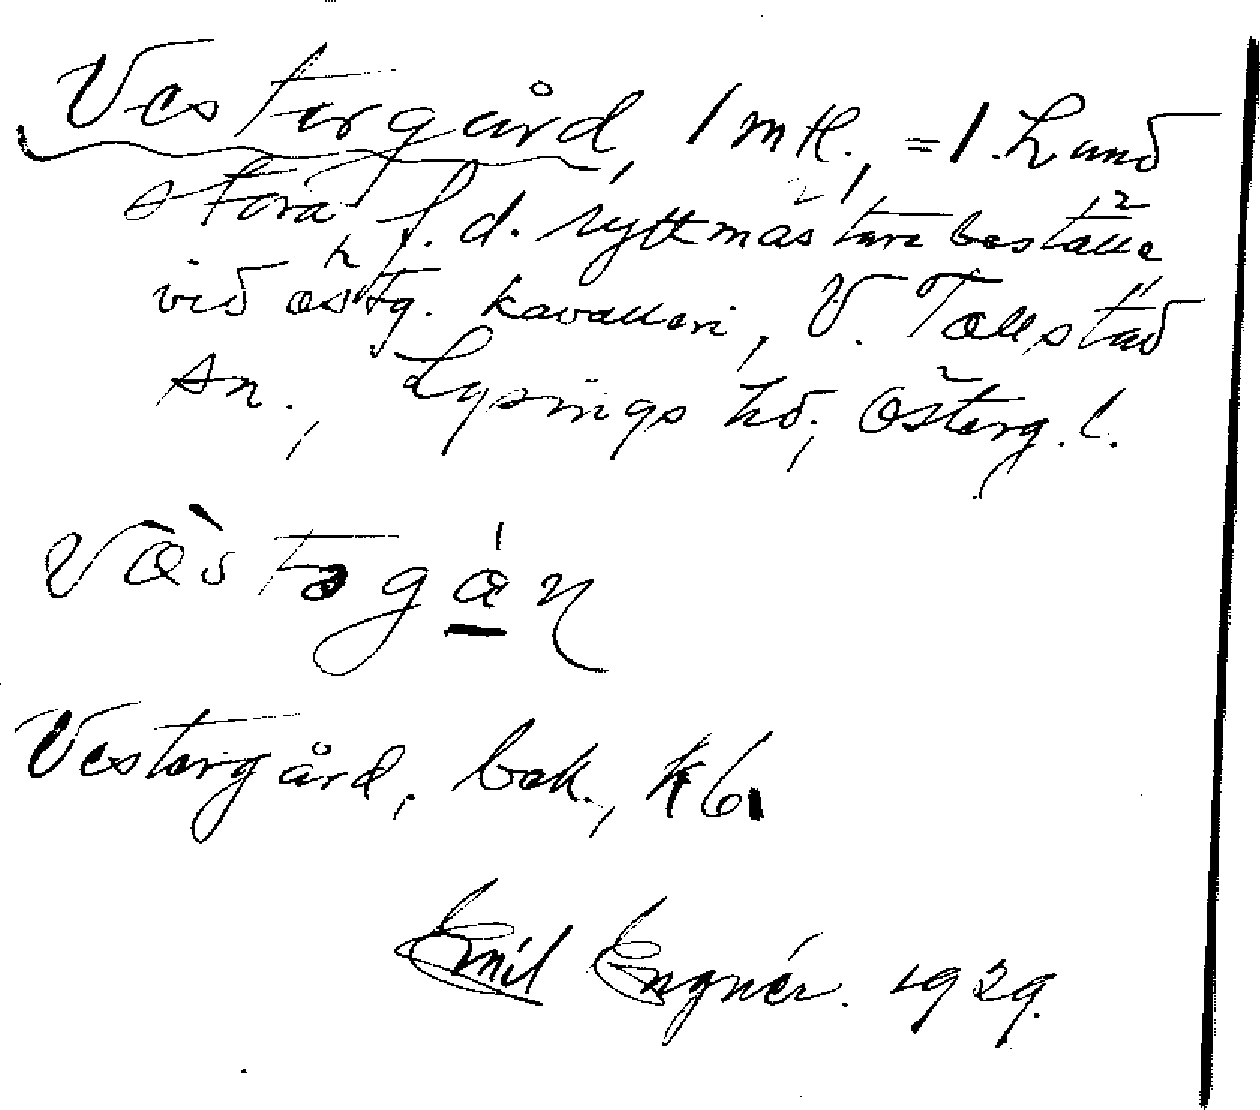 Vestergård, 1 mtl., = 1. Lund
stora f. d. ryttmästare beställe
vid östg. kavalleri, V. Tollstad
sn., Lysings hd., Österg. l.
Vestergård, bok., kb.
Emil Engnér. 1929.